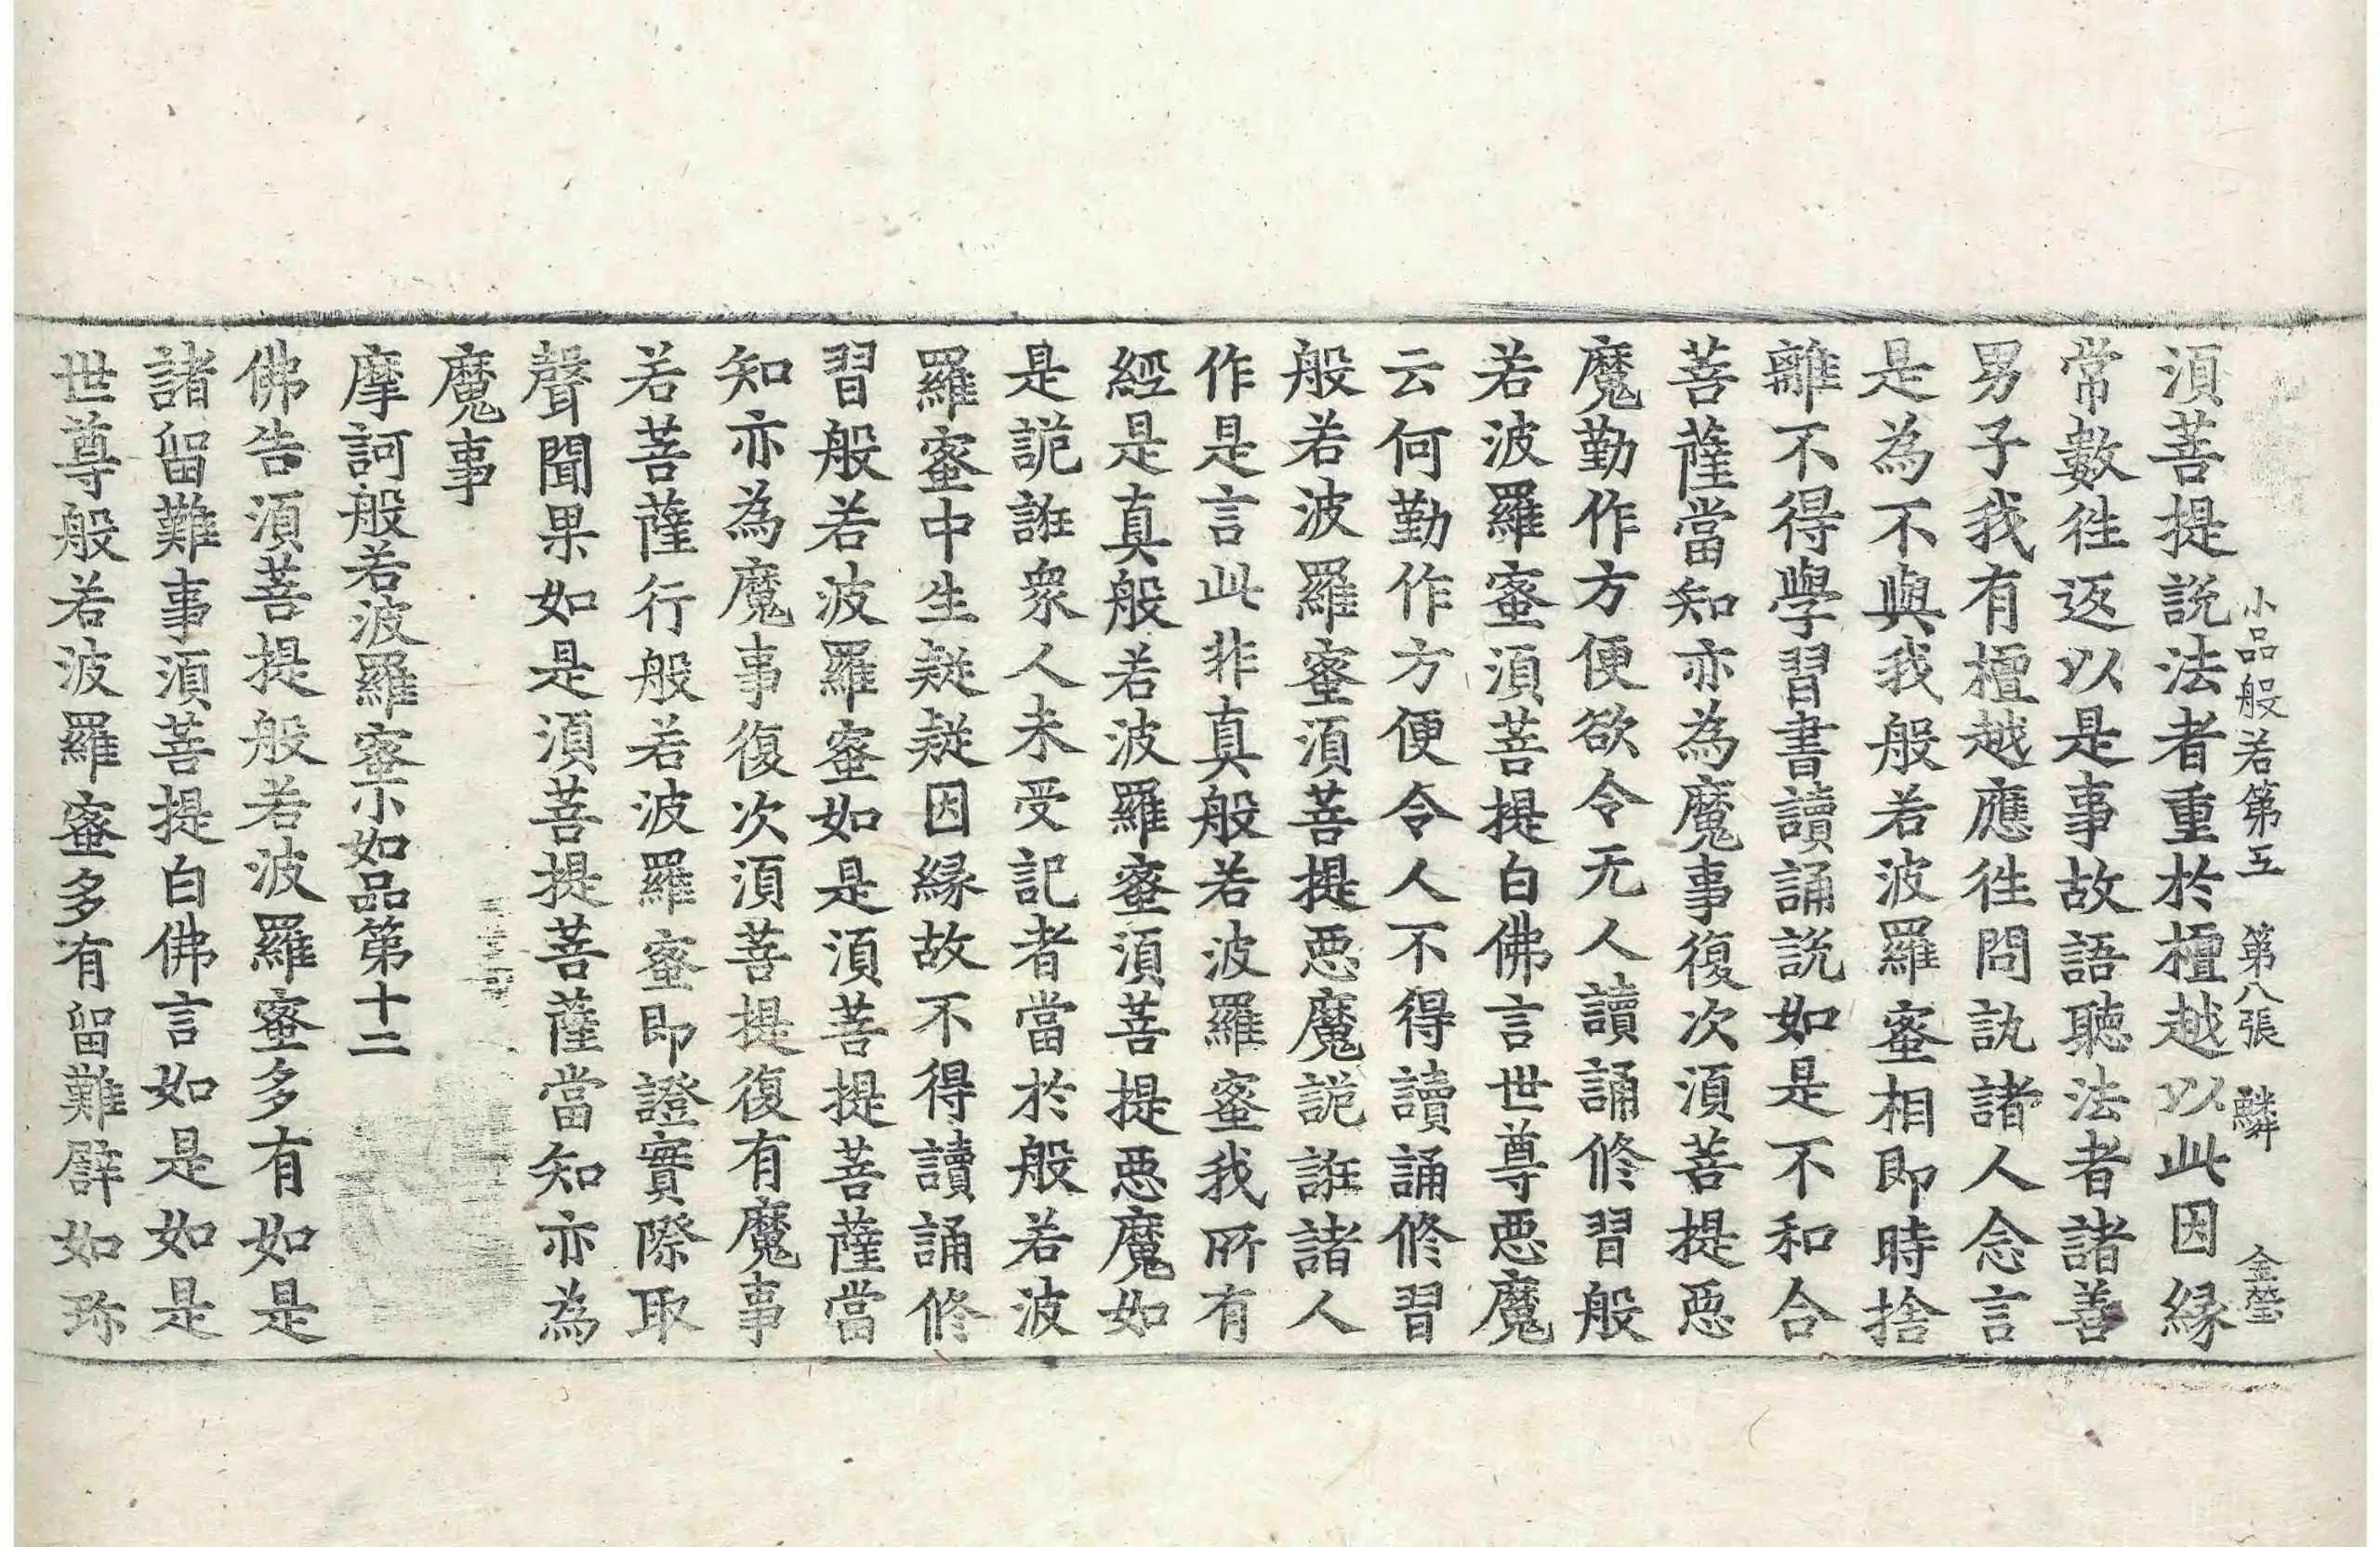 小品般若第五 第八張 鱗 金瑩
湏菩提說法者重於檀越以此因緣
常數徃返以是事故語聽法者諸善
男子我有檀越應徃問訊諸人念言
是為不與我般若波羅蜜相即時捨
離不得學習書讀誦說如是不和合
菩薩當知亦為魔事復次湏菩提惡
魔勤作方便欲令无人讀誦修習般
若波羅蜜湏菩提白佛言世尊惡魔
云何勤作方便令人不得讀誦修習
般若波羅蜜湏菩提惡魔詭誑諸人
作是言此非真般若波羅蜜我所有
經是真般若波羅蜜湏菩提惡魔如
是詭誑衆人未受記者當於般若波
羅蜜中生疑疑因緣故不得讀誦修
習般若波羅蜜如是湏菩提菩薩當
知亦為魔事復次湏菩提復有魔事
若菩薩行般若波羅蜜即證實際取
聲聞果如是湏菩提菩薩當知亦為
魔事
摩訶般若波羅蜜小如品第十二
佛告湏菩提般若波羅蜜多有如是
諸留難事湏菩提白佛言如是如是
世尊般若波羅蜜多有留難譬如珎